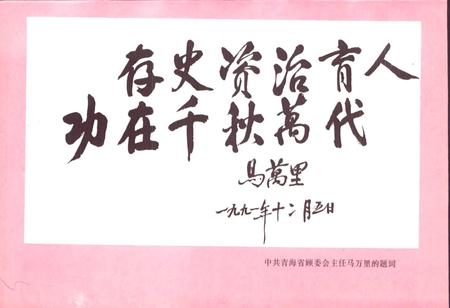 存史资治育人
功在千秋萬代
馬萬里
一九九一年十二月五日
中共青海省顾委会主任马万里的题词